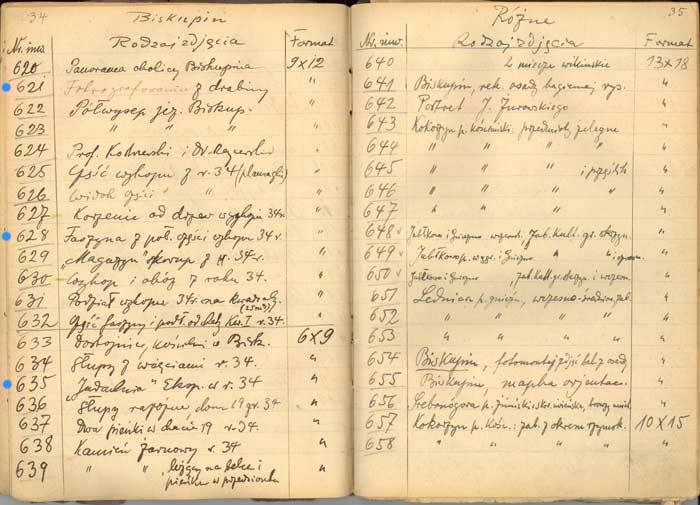 34 Biskupin
Nr. inw. Rodzaj zdjęcia Format
620 Panorama okolicy Biskupina 9x12
621 Fotografowanie z drabiny "
622 Półwysep jez. Biskup. "
623 " " " "
624 Prof. Kostrzewski i dr. "
625 Część wykopu z r. 34 "
626 Widok części " "
627 Korzenie od drzew 34r. "
628 Faszyna z poł. części wykopu 34 r. "
629 "Magazyn" skorup z r. 34. "
630 Wykop i obóz z roku 34. "
631 Podział wykopu 34r. na kwadraty "
(25m²)
632 Część faszyny i r. 34. "
633 Dostojnicy kościelni w Bisk. 6x9
634 Słupy z wcięciami r. 34 "
635 "Jadalnia" Eksp. w r. 34 "
636 Słupy domu 19 gr. 34 "
637 Dwa pieńki w chacie 19 r. 34. "
638 Kamień żarnowy r. 34 "
639 " " leżący na belce i "
pieńku w przedsionku
Różne 35
Nr. inw. Rodzaj zdjęcia Format
640 2 miecze wikińskie 13x18
641 Biskupin, rek. osady bagiennej rys. "
642 Portret J. Żurowskiego "
643 Kokorzyn p. kościański przedmioty żelazne "
644 " " " " "
645 " " " i "
646 " " " " "
647 " " " "
648 Jabłkowo i Gniezno zab. kult. gr. "
649 Jabłkowo p. i Gniezno " " "
650 Jabłkowo i Gniezno , zab. kult. gr. i "
651 Lednica p. gnieźn. zab. "
652 " " " " "
653 " " " "
654 Biskupin, fotomontaż zdjęć z osady "
655 Biskupin, mapka orjentac. "
656 Srebrnogóra p. "
657 Kokorzyn p. Kośc.: zab. z okresu rzymsk. 10x15
658 " " " " "